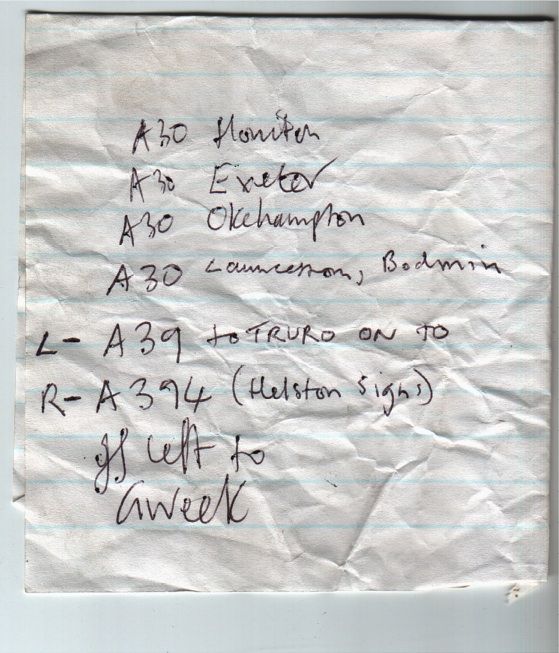 A30 Honiton
A30 Exeter
A30 Okehampton
A30 Launceston, Bodmin
L- A39 to TRURO ON TO
R- A394 (Helston signs)
left to
Gweek